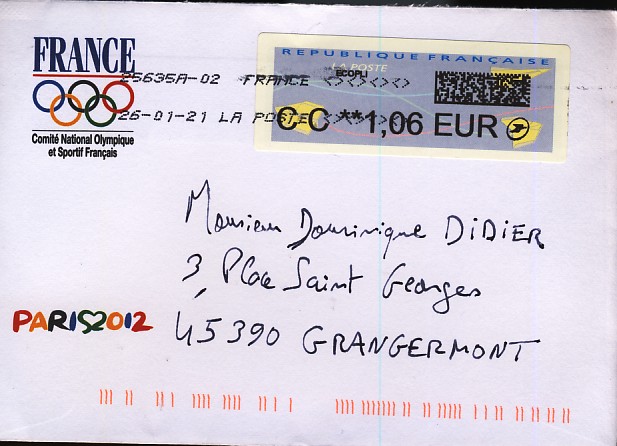 FRANCE
Comité National Olympique
et Sportif Français
REPUBLIQUE FRANÇAISE
LA POSTE
ECOPLI
CC **1,06 EUR
25635A-02 FRANCE <><><><>
26-01-21 LA POSTE <><><><>
Monsieur Dominique DIDIER
3, Place Saint Georges
45390 GRANGERMONT
PARIS2012